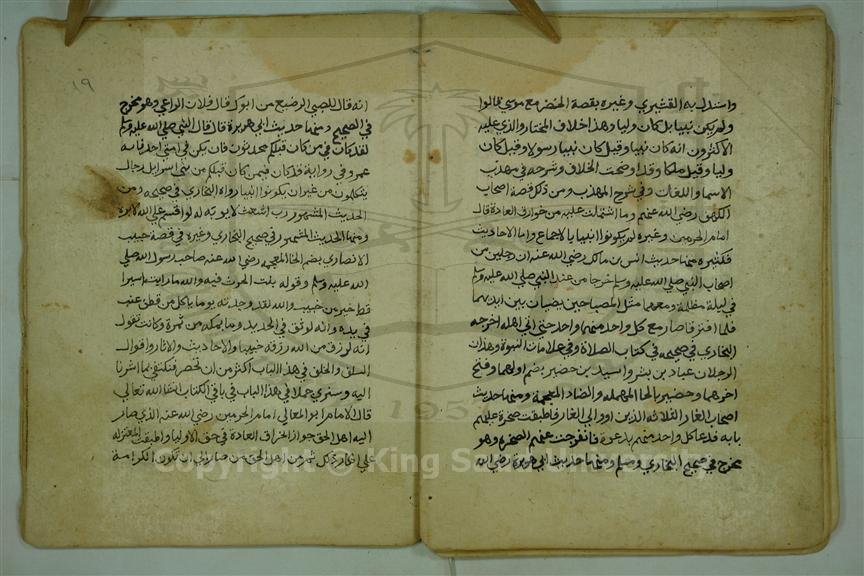 واستدل به القشيري وغيره بقصة الخضر مع موسى قالوا
ولم يكن نبيا بل كان وليا وهذا خلاف المختار والذي عليه
الاكثرون انه كان نبيا وقيل كان نبيا رسولا وقيل كان
وليا وقيل ملكا وقد اوضحت الخلاف وشرحه في مهذب
الاسما واللغات وفي شرح المهذب ومن ذلك قصة اصحاب
الكهف رضي الله عنهم وما اشتملت عليه من خوارق العادة قال
امام الحرمين وغيره لم يكونوا انبيا بالاجماع واما الاحاديث
فكثيرة منها حديث انس بن مالك رضي الله عنه ان رجلين من
اصحاب النبي صلى الله عليه وسلم خرجا من عند النبي صلى الله عليه وسلم
في ليلة مظلمة ومعهما مثل المصباحين يضيان بين ايديهما
فلما افترقا صار مع كل واحد منهما واحد حتى اتى اهله اخرجه
البخاري في صحيحه في كتاب الصلاة وفي علامات النبوة وهذان
الرجلان عباد بن بشر واسيد بن حضير بضم اولهما وفتح
اخرهما وحضير بالحا المهمله والضاد المعجمة ومنها حديث
اصحاب الغار الثلاثه الذين اووا الى الغار فاطبقت صخرة عليهم
بابه فدعا كل واحد منهم بدعوة فانفرجت عنهم الصخره وهو
مخرج في صحيح البخاري ومسلم ومنها حديث ابي هريرة رضي الله
١٩
انه قال للصبي الرضيع من ابوك قال فلان الراعي وهو مخرج
في الصحيح ومنها حديث ابي هريرة قال قال النبي صلى الله عليه وسلم
لقد كان في من كان قبلكم محدثون فان يكن في امتي احد فانه
عمر وفي رواية قد كان فيمن كان قبلكم من بني اسرائيل رجال
يتكلمون من غير ان يكونوا انبيا رواه البخاري في صحيحه ومن
الحديث المشهور رب اشعث لا يوبه له لو اقسم على الله لابره
ومنها الحديث المشهور في صحيح البخاري وغيره في قصة خبيب
الانصاري بضم الخا المعجمه رضي الله عنه صاحب رسول الله صلى
الله عليه وسلم وقوله بنت الحرث فيه والله ما رايت اسيرا
قط خيرا من خبيب والله لقد وجدته يوما ياكل من قطف عنب
في يده وانه لموثق في الحديد وما بمكه من ثمرة وكانت تقول
انه لرزق من الله رزقه خبيبا والاحاديث والاثار واقوال
السلف والخلف في هذا الباب اكثر من ان تحصر فنكتفي بما اشرنا
اليه وسنري جملا في هذا الباب في باقي الكتاب ان شا الله تعالى
قال الامام ابو المعالي امام الحرمين رضي الله عنه الذي صار
اليه اهل الحق جواز انخراق العادة في حق الاوليا واطبقت المعتزله
على انكار ذلك ثم من اهل الحق من صار الى ان تكون الكرامة
Copyright © King Saud University
1957